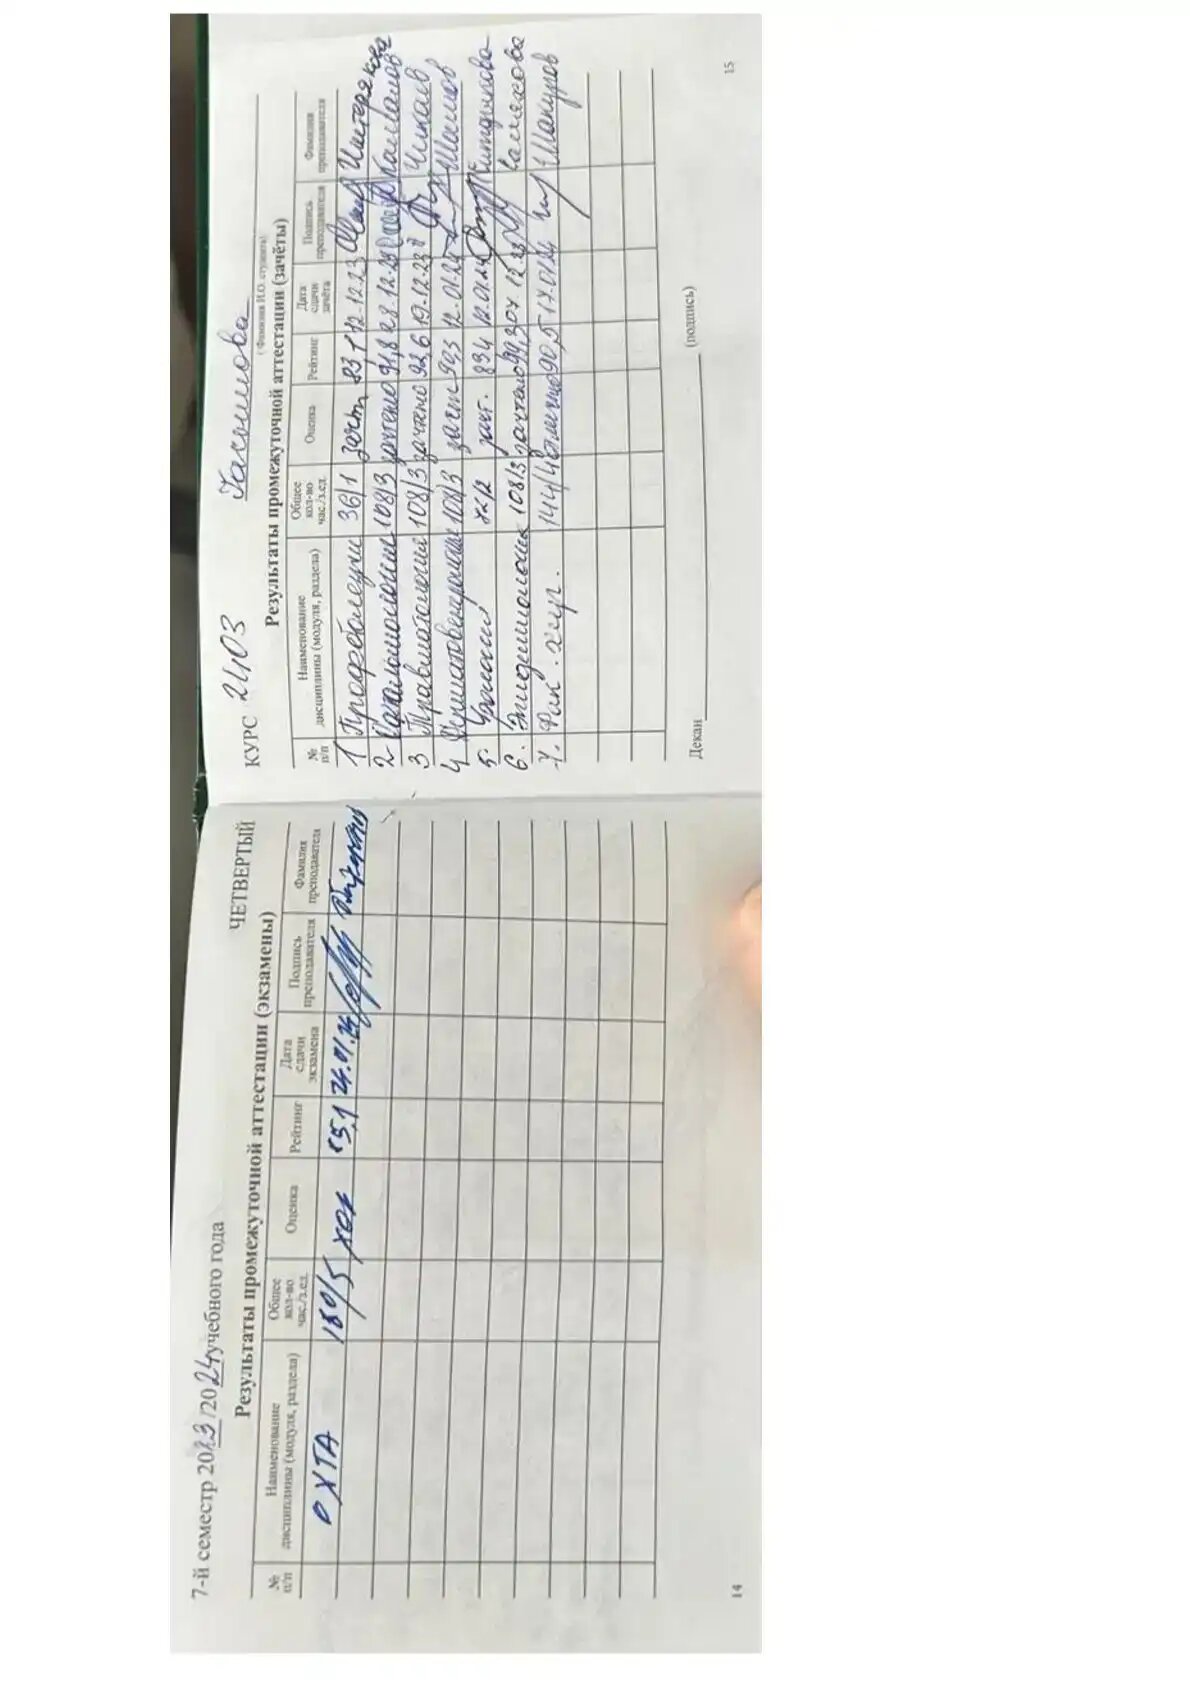 7-й семестр 2023/2024 учебного года
Результаты промежуточной аттестации (экзамены)
№ п/п Наименование дисциплины (модуля, раздела) Общее кол-во час./з.ед. Оценка Рейтинг Дата сдачи экзамена Подпись преподавателя Фамилия преподавателя
ОХТА 180/5 хор 24.01.24
14
ЧЕТВЕРТЫЙ
КУРС 2403
(Фамилия И.О. студента)
Результаты промежуточной аттестации (зачёты)
№ п/п Наименование дисциплины (модуля, раздела) Общее кол-во час./з.ед. Оценка Рейтинг Дата сдачи зачёта Подпись преподавателя Фамилия преподавателя
1 Профболезни 36/1 зачт 83,1 12.12.23
2 108/3 зачтено 91,8 28.12.23
3 Травматология 108/3 зачтено 92,6 19.12.23 Чикаев
4 Дерматовенерология 108/3 зачт 90,3 12.01.24
5. зачт. 83,4 12.01.24
6. Эпидемиология 108/3 зачтено 99,3 07.12.23
7. Фак. хир. 144/4 отлично 90,5 17.01.24
Декан (подпись)
15